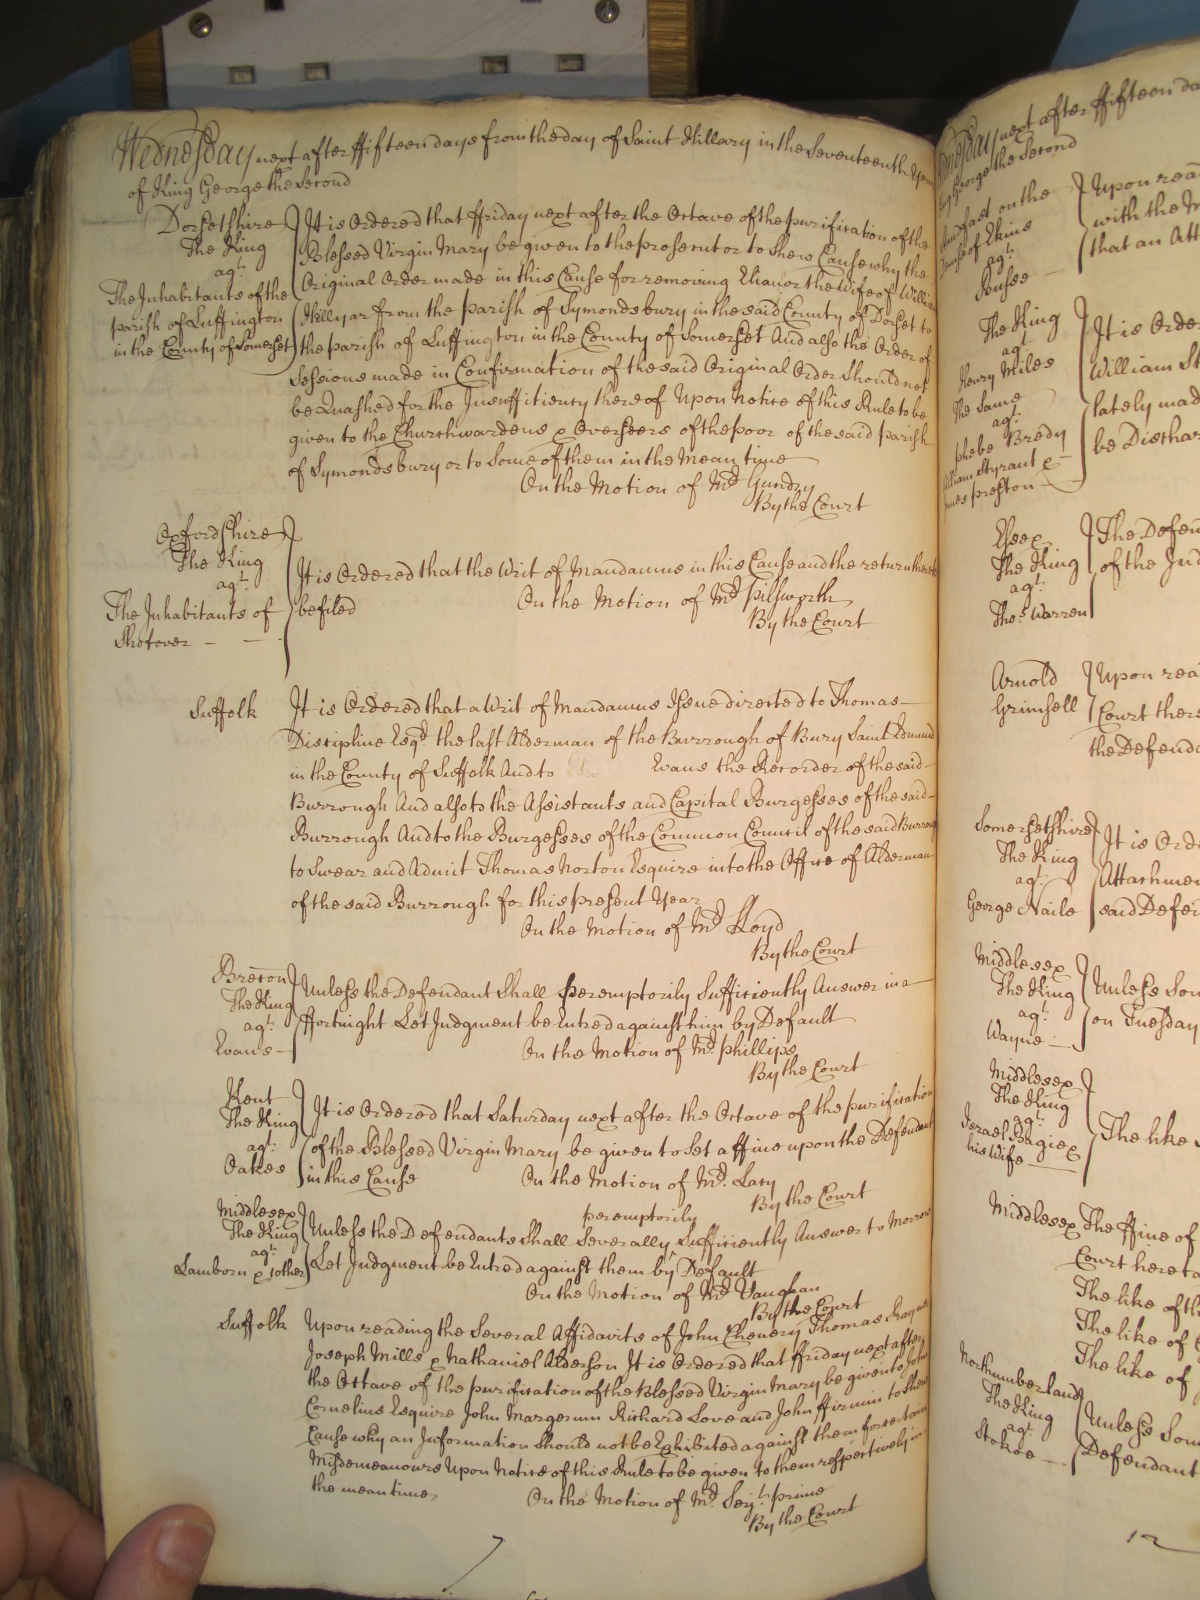 Wednesday next after ffifteen days from the day of Saint Hillary in the Seventeenth Year
of King George the Second
Dorsetshire
The King
agt.
The Inhabitants of the
parish of Luffington
in the County of Somerset
It is Ordered that ffriday next after the Octave of the purification of the
Blessed Virgin Mary be given to the prosecutor to Shew Cause why the
Original Order made in this Cause for removing Elianor the Wife of William
Hillyar from the parish of Symondsbury in the said County of Dorset to
the parish of Luffington in the County of Somerset And also the Order of
Sessions made in Confirmation of the said Original Order Should not
be Quashed for the Insuffitiency thereof Upon Notice of this Rule to be
given to the Churchwardens & Overseers of the poor of the said parish
of Symondsbury or to Some of them in the Mean time
On the Motion of Mr. Gundry
By the Court
Oxfordshire
The King
agt.
The Inhabitants of
Shotover
It is Ordered that the Writ of Mandamus in this Cause and the return thereto
be filed
On the Motion of Mr. Pilsworth
By the Court
Suffolk
It is Ordered that a Writ of Mandamus Issue directed to Thomas
Discipline Esqr. the last Alderman of the Burrough of Bury Saint Edmund
in the County of Suffolk And to Evans the Recorder of the said
Burrough And also to the Assistants and Capital Burgesses of the said
Burrough And to the Burgesses of the Common Council of the said Burrough
to Swear and Admit Thomas Norton Esquire into the Office of Alderman
of the said Burrough for this present Year
On the Motion of Mr. Lloyd
By the Court
Brecon
The King
agt.
Evans
Unless the Defendant Shall peremptorily Suffitiently Answer in a
ffortnight Let Judgment be Entred against him by Default
On the Motion of Mr. phillips
By the Court
Kent
The King
agt.
Oakes
It is Ordered that Saturday next after the Octave of the purification
of the Blessed Virgin Mary be given to Set a ffine upon the Defendant
in this Cause
On the Motion of Mr. Lacy
By the Court
Middlesex
The King
agt.
Lamborn & 1 other
peremptorily
Unless the Defendants Shall Severally Suffitiently Answer to Morrow
Let Judgment be Entred against them by Default
On the Motion of Mr. Vaughan
By the Court
Suffolk
Upon reading the Several Affidavits of John Chenery Thomas
Joseph Mills & Nathaniel Alderson It is Ordered that ffriday next after
the Octave of the purification of the Blessed Virgin Mary be given to John
Cornelius Esquire John Margerum Richard Love and John ffirmin to Shew
Cause why an Information Should not be Exhibited against them for certain
Misdemeanours Upon Notice of this Rule to be given to them respectively in
the mean time
On the Motion of Mr. Serjt. prime
By the Court
next after ffifteen da
King George the Second
on the
House of Ekins
agt.
Busse
Upon rea
with the M
that an Att
The King
agt.
Henry Miles
The Same
agt.
phebe Bredy
William Styrant &
James preston
It is Orde
William St
lately mad
be Dischar
Essex
The King
agt.
Thos. Warren
The Defen
of the Jud
Arnold
Grimsell
Upon rea
Court there
the Defenda
Somersetshire
The King
agt.
George Naile
It is Orde
Attachmen
said Defen
Middlesex
The King
agt.
Wayne
Unless Som
on Tuesday
Middlesex
The King
agt.
Israel
his Wife
The like
Middlesex
The ffine of
Court here ta
The like of th
The like of
The like of
Northumberland
The King
agt.
Stokoe
Unless Som
Defendant